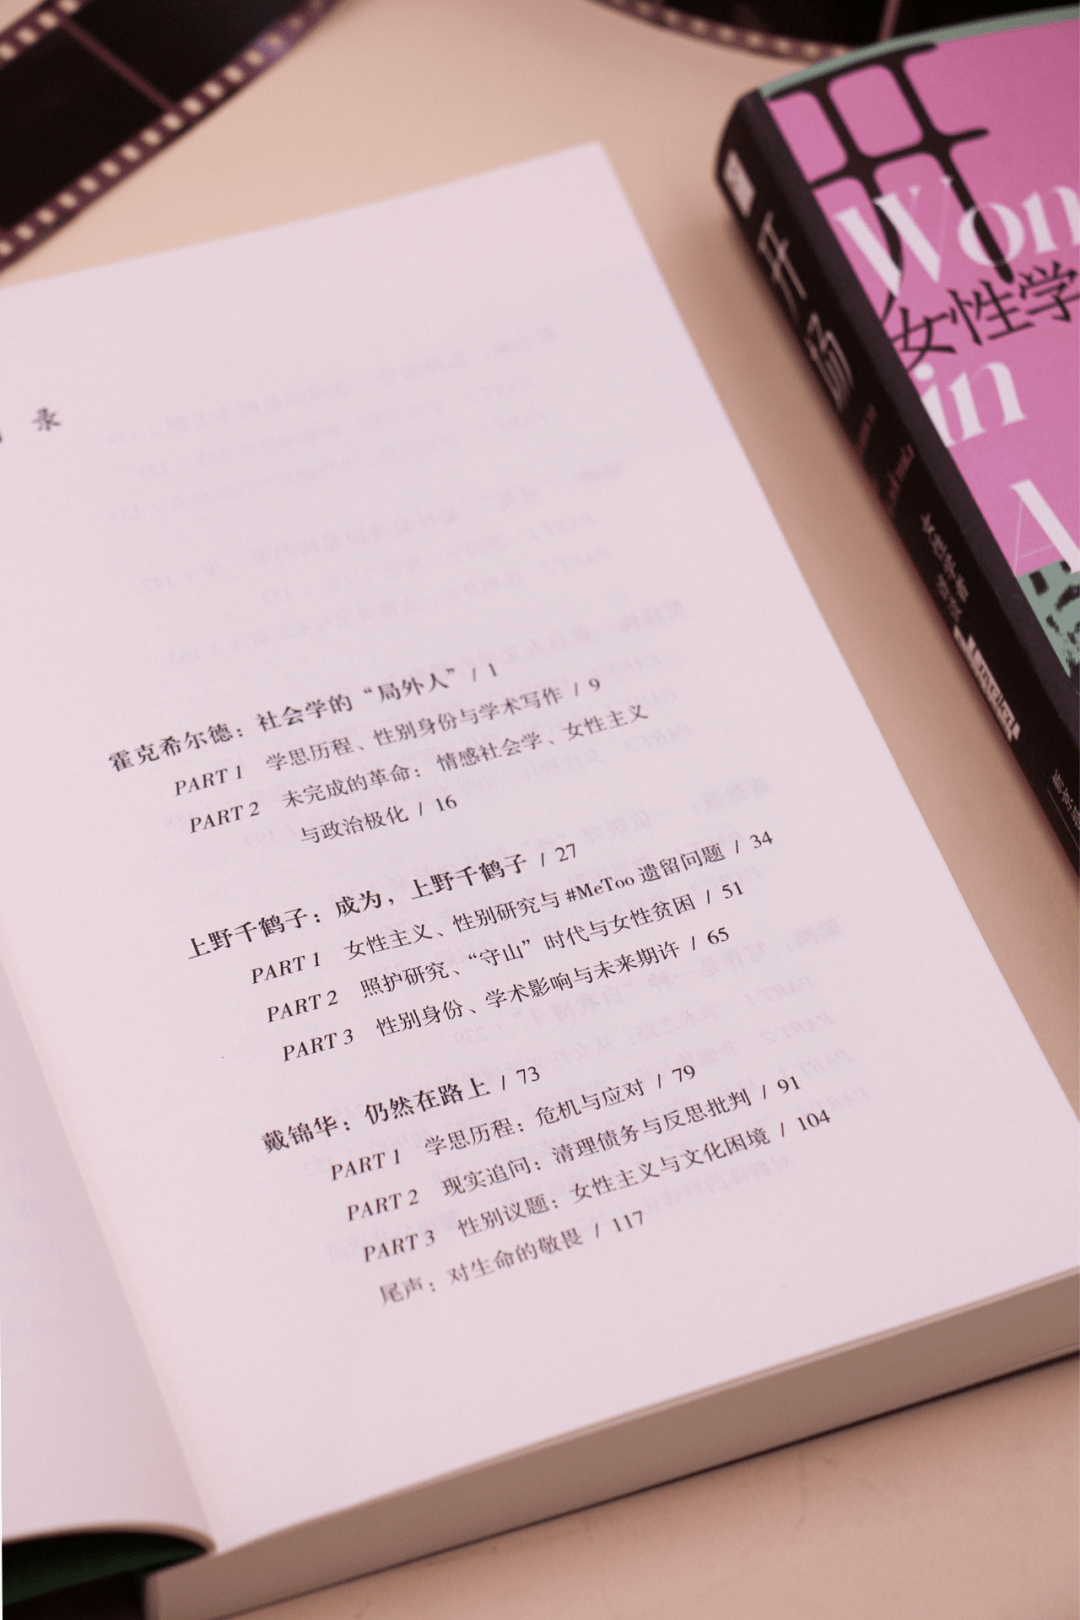 录
霍克希尔德：社会学的“局外人” / 1
PART 1 学思历程、性别身份与学术写作 / 9
PART 2 未完成的革命：情感社会学、女性主义
与政治极化 / 16
上野千鹤子：成为，上野千鹤子 / 27
PART 1 女性主义、性别研究与 #MeToo 遗留问题 / 34
PART 2 照护研究、“守山”时代与女性贫困 / 51
PART 3 性别身份、学术影响与未来期许 / 65
戴锦华：仍然在路上 / 73
PART 1 学思历程：危机与应对 / 79
PART 2 现实追问：清理债务与反思批判 / 91
PART 3 性别议题：女性主义与文化困境 / 104
尾声：对生命的敬畏 / 117
Wom
女性学
in
A